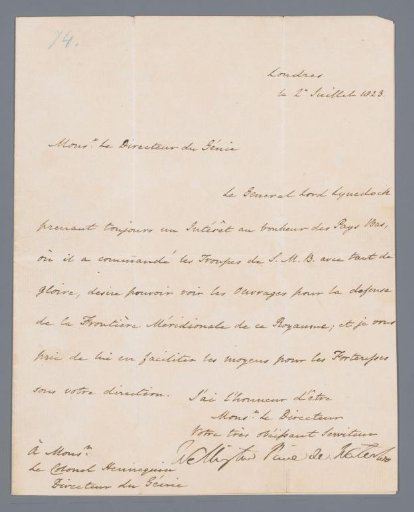 74.
Londres
le 2e Juillet 1823.
Monsr. Le Directeur du Génie
Le General Lord Lynedoch
prenant toujours un Intérêt au bonheur des Pays Bas,
où il a commandé les Troupes de S. M. B. avec tant de
gloire, desire pouvoir voir les Ouvrages pour la defense
de la Frontière Méridionale de ce Royaume; et je vous
prie de lui en faciliter les moyens pour les Forteresses
sous votre direction.
J'ai l'honneur d'être
Monsr. Le Directeur
Votre très obéissant Serviteur
Wellington Prince de Waterloo
À Monsr.
Le Colonel Hennequin
Directeur du Génie